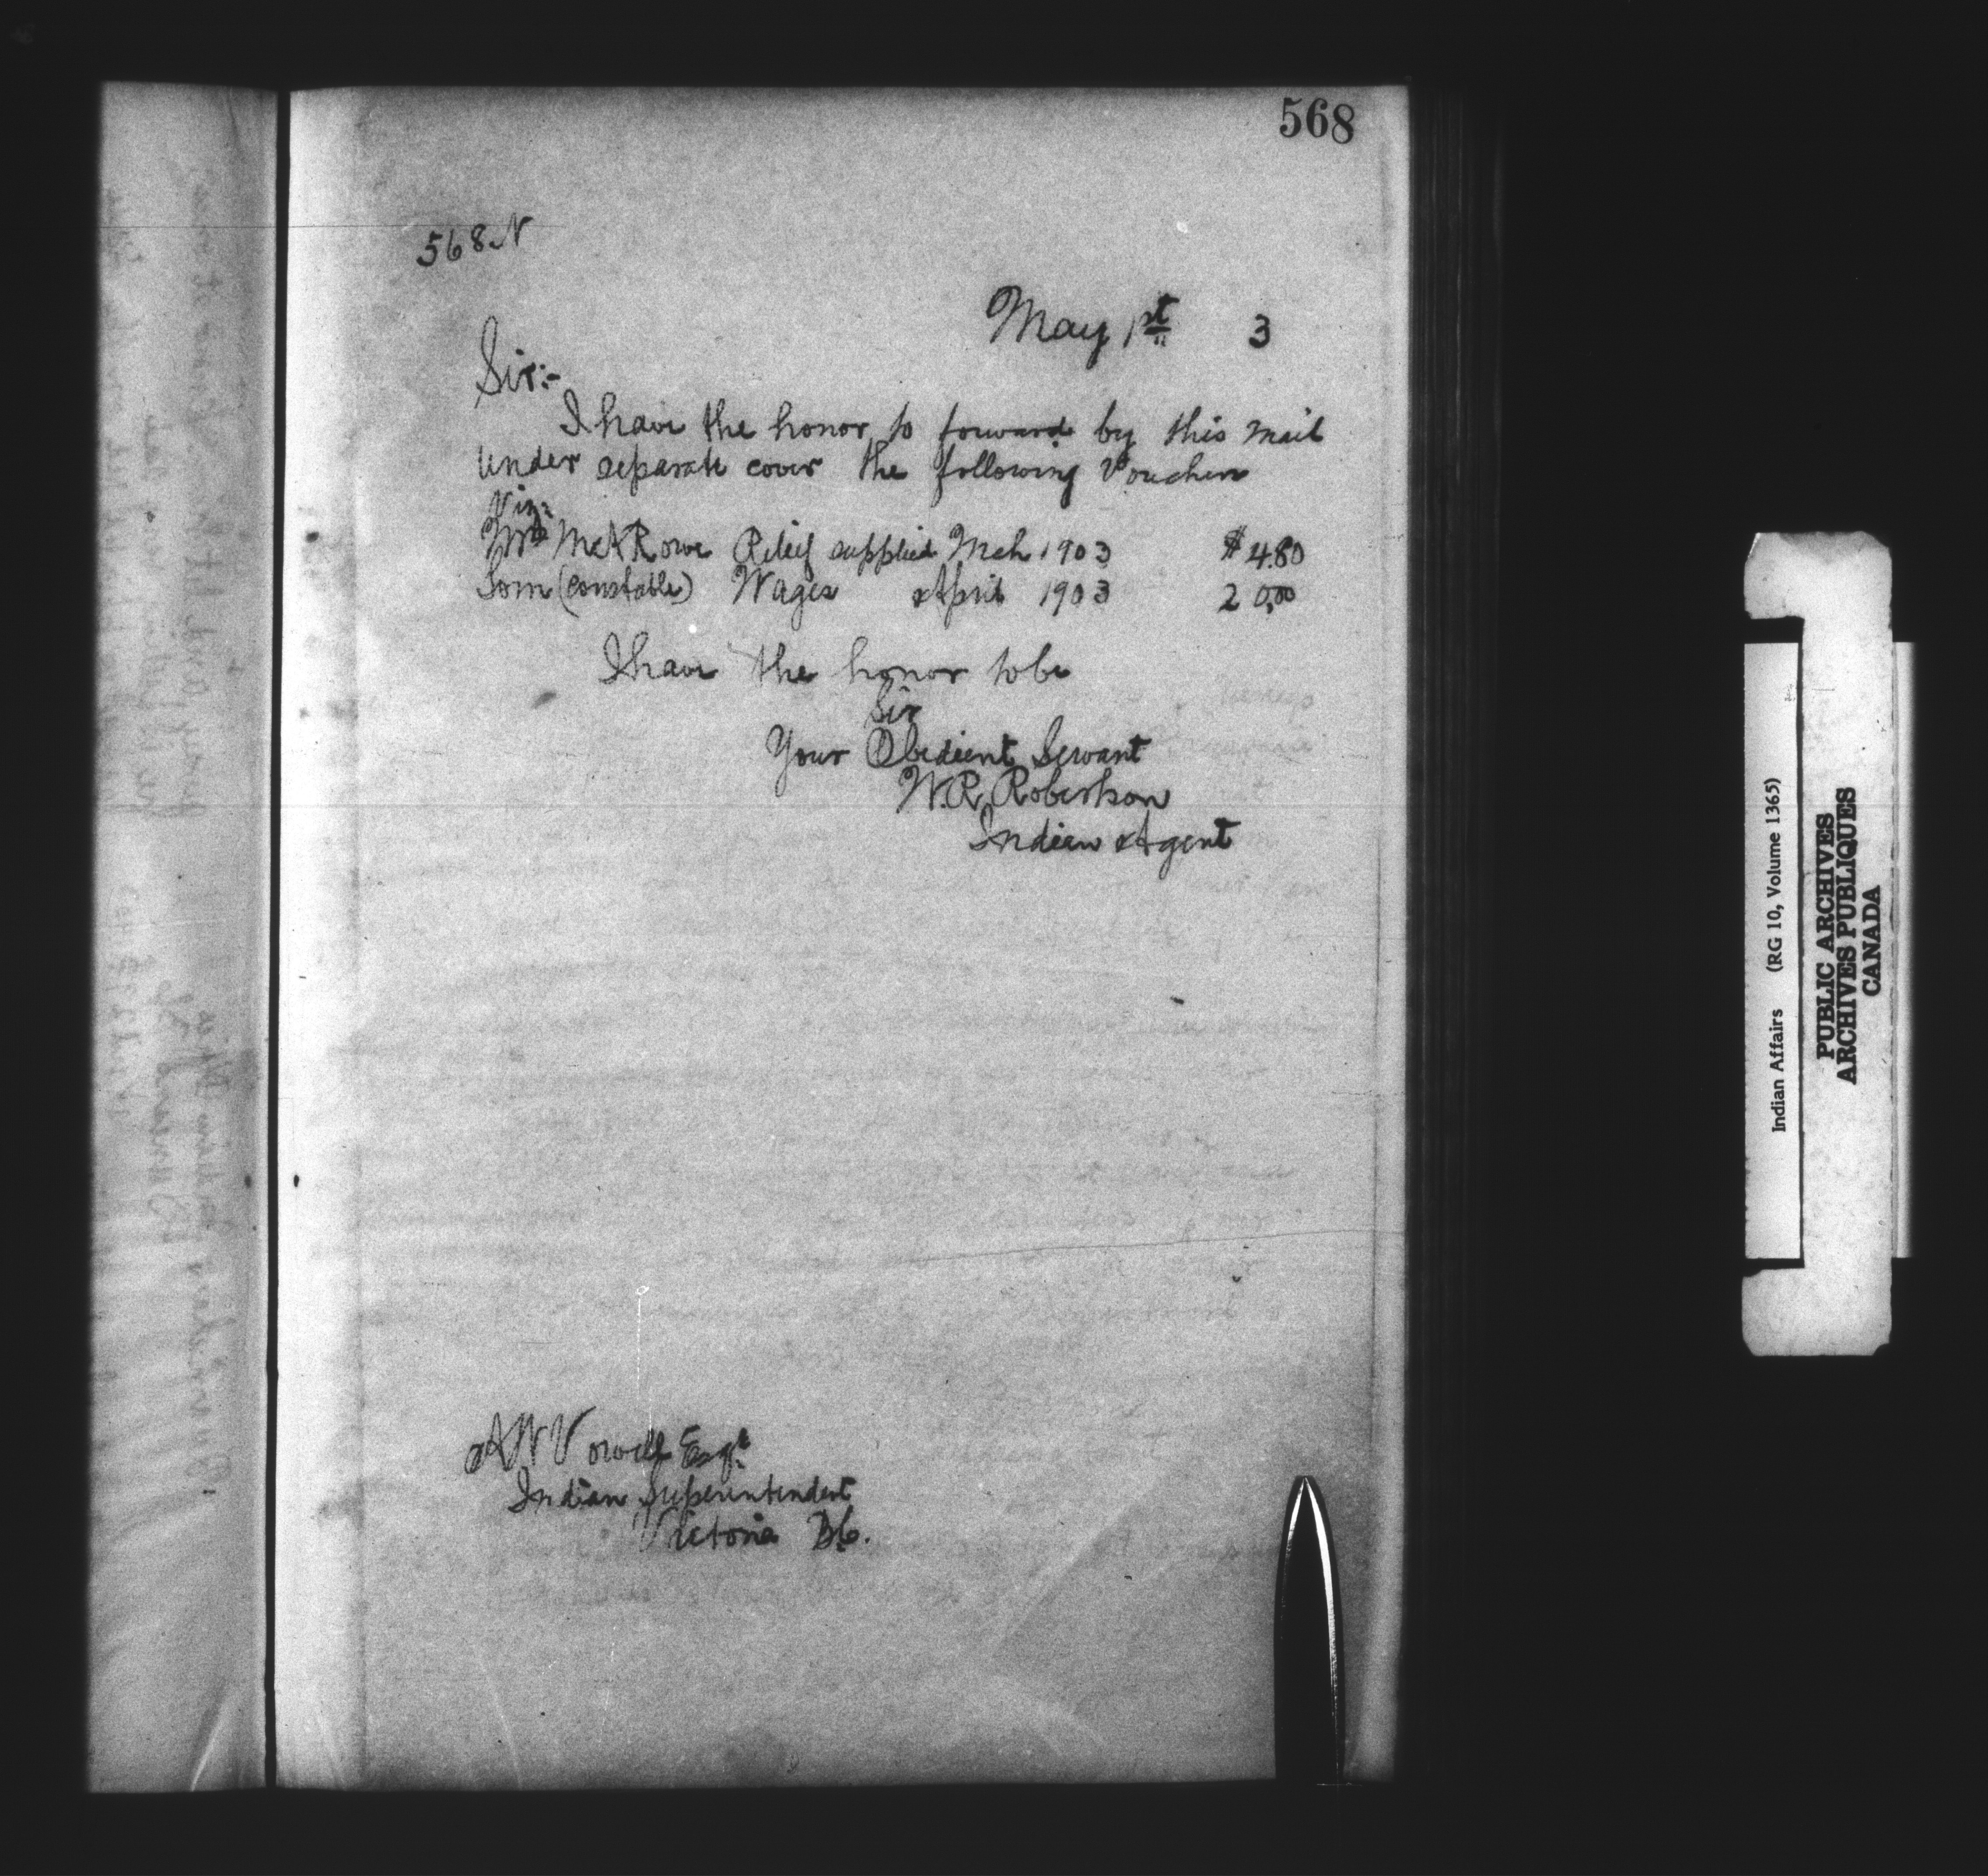 568
568 N
May 1st 3
Sir:-
I have the honor to forward by this mail
under separate cover the following Vouchers
Viz:
Mrs Rowe Relief supplied Mch 1903 $4.80
Tom (Constable) Wages April 1903 20.00
I have the honor to be
Sir
Your Obedient Servant
W.R. Robertson
Indian Agent
A W Vowell Esqr
Indian Superintendent
Victoria B.C.
Indian Affairs (RG 10, Volume 1365)
PUBLIC ARCHIVES
ARCHIVES PUBLIQUES
CANADA